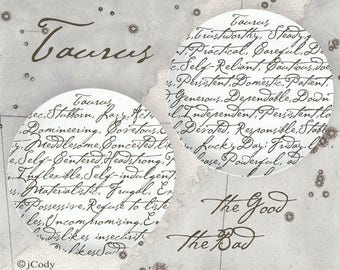 Taurus
Taurus
s, Trustworthy, Steady
nt, Practical, Careful, D
sic, Self-Reliant, Cautious, doe
es, Persistent, Domestic, Patient
Generous, Dependable, Down
l, Independent, Persistent, Lo
Devoted, Responsible, Stab
Lucky Day: Friday
Base, Powerful, ad
Taurus
Stubborn, Lazy,
Domineering, Covetous, E
y Meddlesome, Conceited,
le, Self-Centred, Headstrong,
Inflexible, Self-indulgent
Materialistic, Frugal, E
Possessive, Refuse to liste
Uncompromising, E
dislikes insecurity
dislikes
the Good
the Bad
© jCody